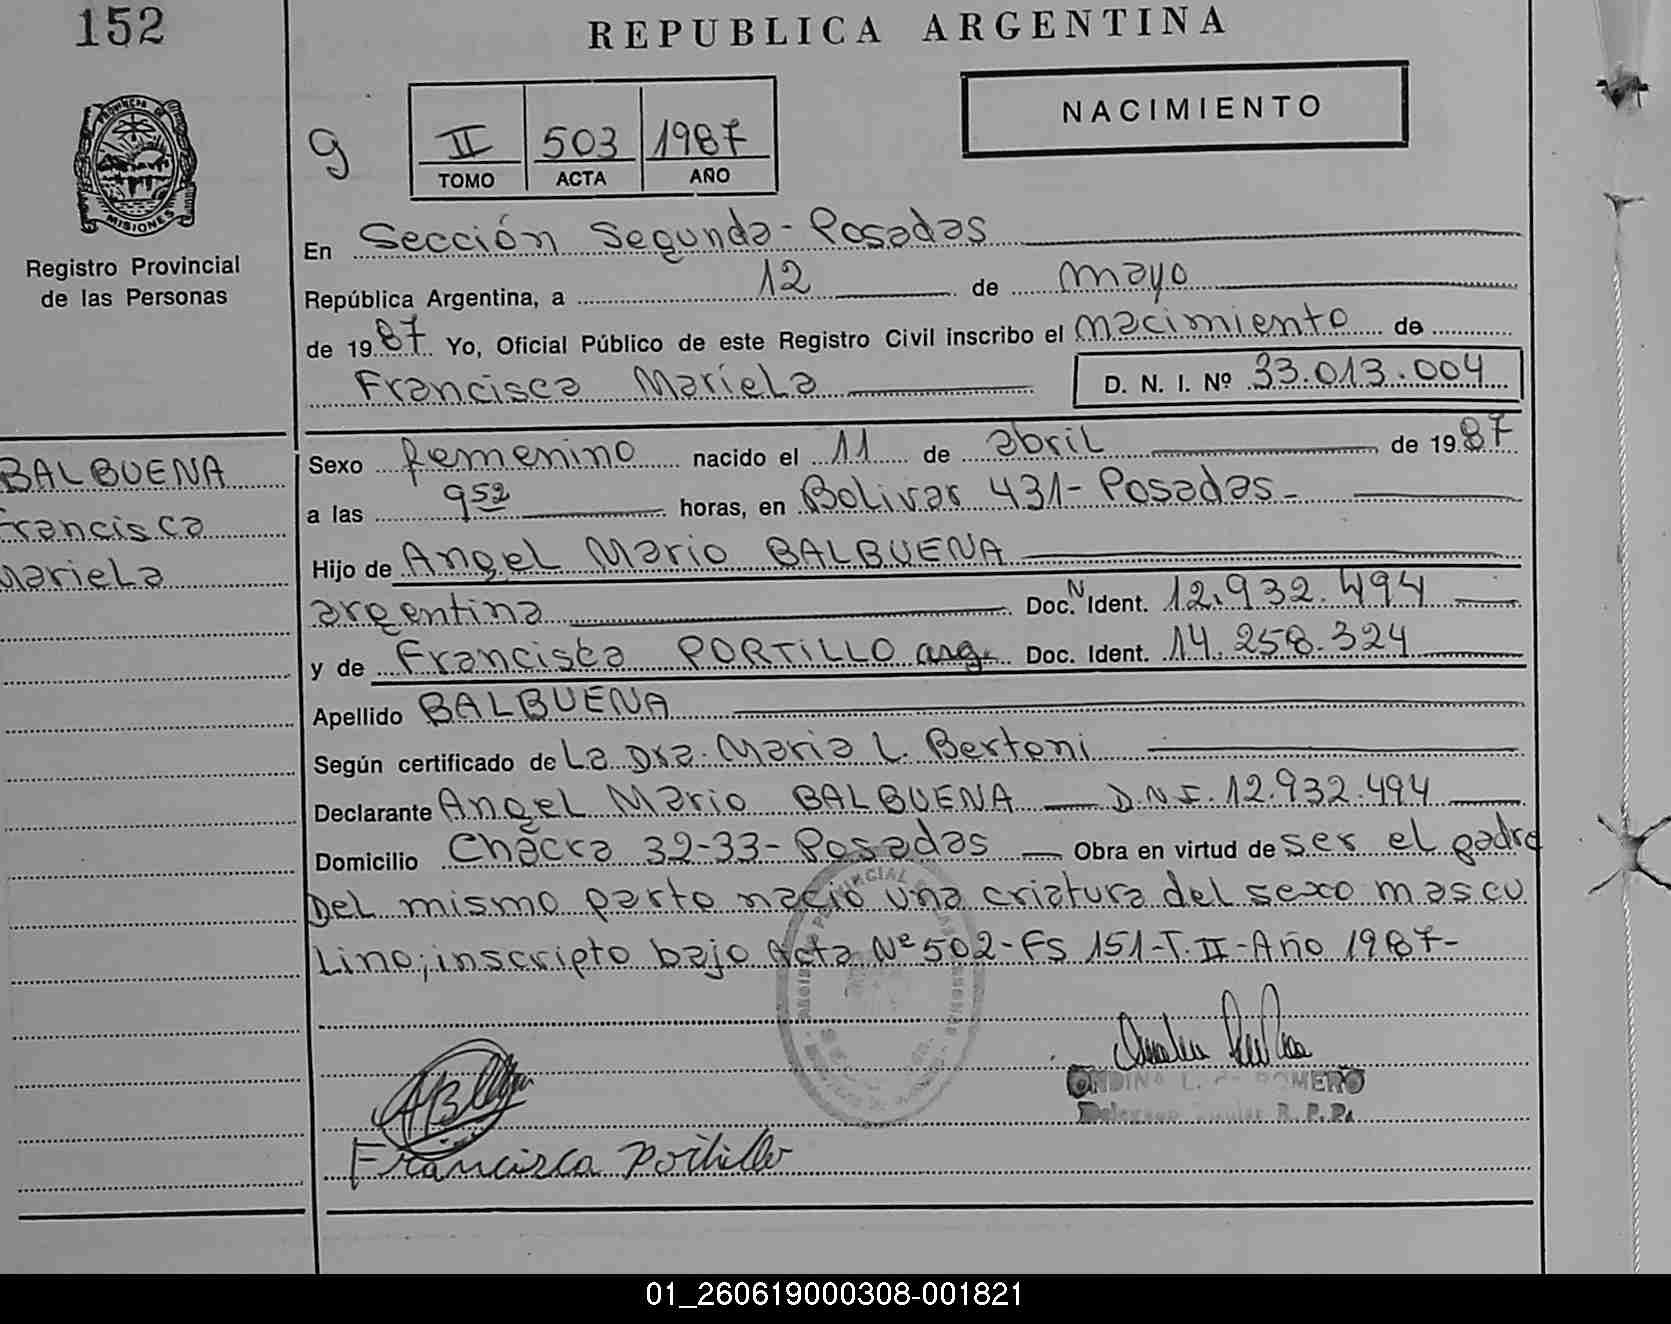 152
REPUBLICA ARGENTINA
NACIMIENTO
9
II 503 1987
TOMO ACTA AÑO
PROVINCIA DE
MISIONES
Registro Provincial
de las Personas
En Sección Segunda - Posadas
República Argentina, a 12 de mayo
de 1987 Yo, Oficial Público de este Registro Civil inscribo el nacimiento de
Francisca Mariela D. N. I. Nº 33.013.004
BALBUENA
Francisca
Mariela
Sexo femenino nacido el 11 de abril de 1987
a las 9 52 horas, en Bolivar 431 - Posadas -
Hijo de Angel Mario BALBUENA
argentina Doc. N Ident. 12.932.494
y de Francisca PORTILLO arg. Doc. Ident. 14.258.324
Apellido BALBUENA
Según certificado de La Dra. Maria L. Bertoni
Declarante Angel Mario BALBUENA — D.N.I. 12.932.494
Domicilio Chacra 32-33- Posadas — Obra en virtud de ser el padre
Del mismo parto nació una criatura del sexo mascu
Lino; inscripto bajo Acta Nº 502 - Fs 151 - T. II - Año 1987 -
ONDINA L. de ROMERO
R. P. P.
Francisca Portillo
01_260619000308-001821